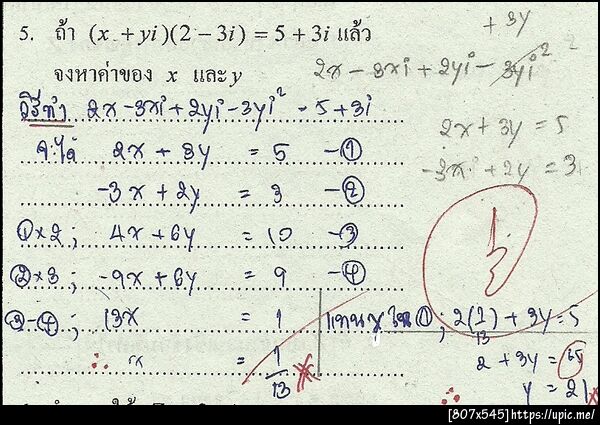 5. ถ้า (x + yi)(2 - 3i) = 5 + 3i แล้ว
จงหาค่าของ x และ y
+ 3y
2x - 3xi + 2yi - 3yi²
วิธีทำ 2x - 3xi + 2yi - 3yi² = 5 + 3i
2x + 3y = 5
-3xi + 2y = 3
จะได้ 2x + 3y = 5 -①
-3x + 2y = 3 -②
①×2; 4x + 6y = 10 -③
②×3; -9x + 6y = 9 -④
③-④; 13x = 1
∴ x = 1/13
แทน x ใน ①; 2(1/13) + 3y = 5
2 + 3y = 65
y = 21
[807x545]https://upic.me/